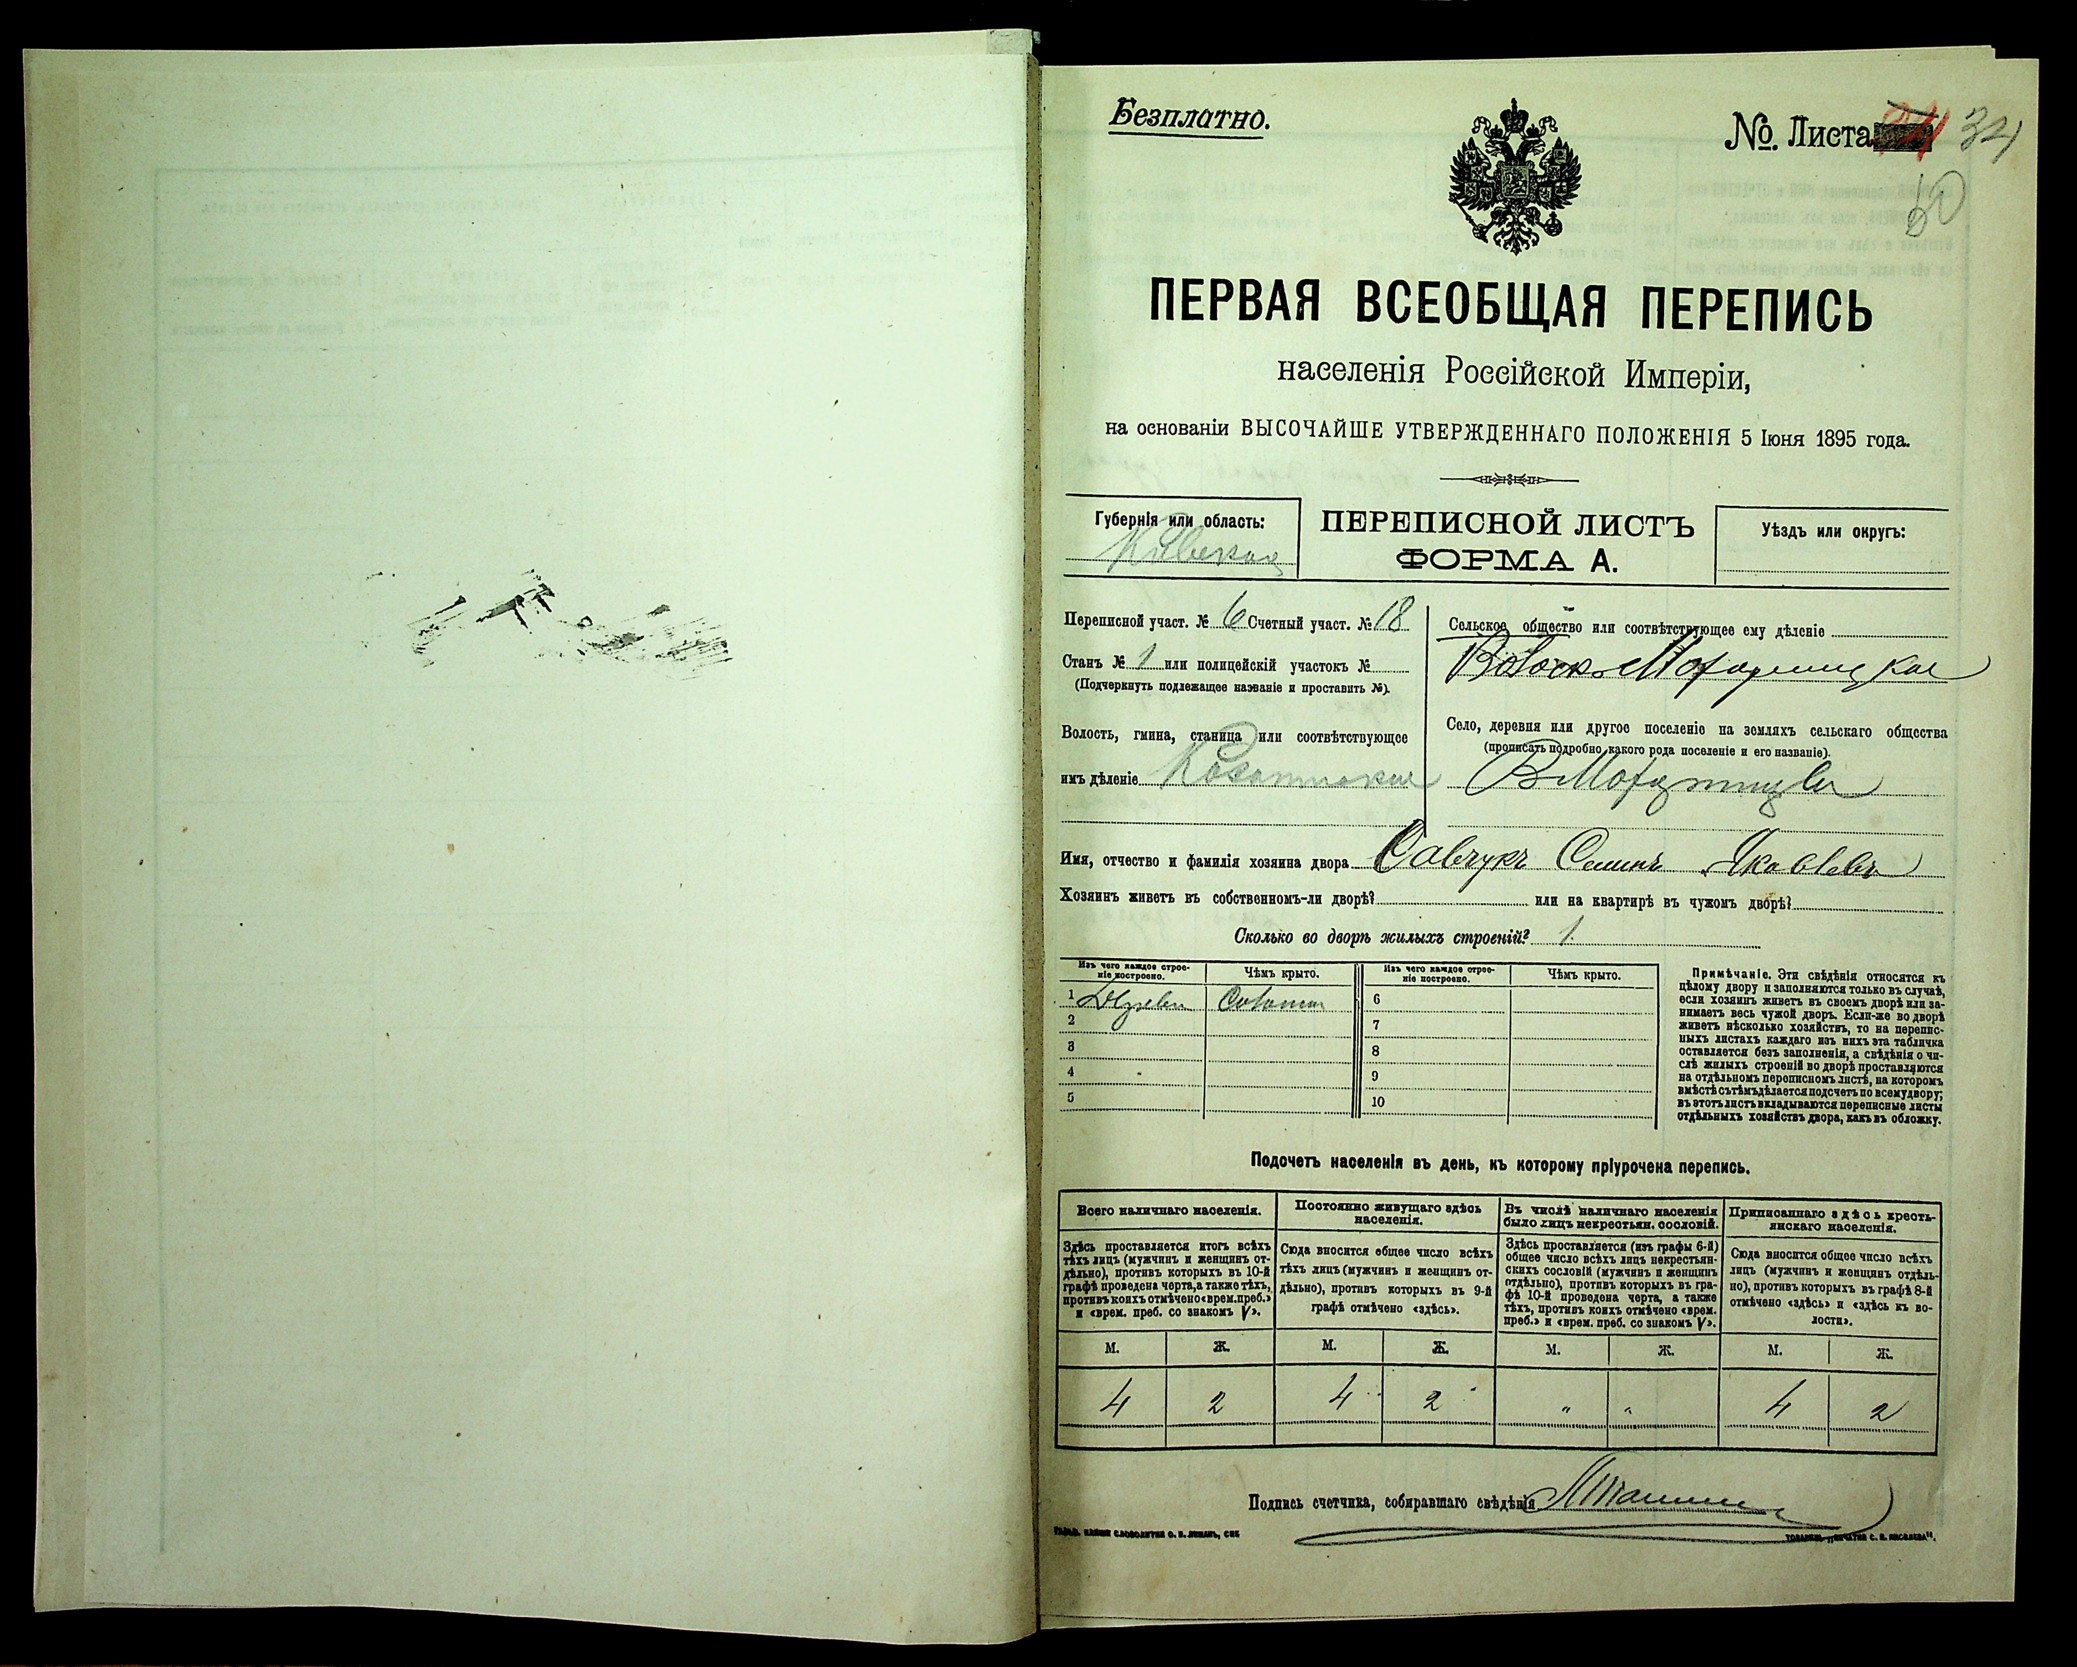 Безплатно.
№. Листа 34
60
ПЕРВАЯ ВСЕОБЩАЯ ПЕРЕПИСЬ
населенія Россійской Имперіи,
на основаніи ВЫСОЧАЙШЕ УТВЕРЖДЕННАГО ПОЛОЖЕНІЯ 5 Іюня 1895 года.
Губернія или область:
Кіевская
ПЕРЕПИСНОЙ ЛИСТЪ
ФОРМА А.
Уѣздъ или округъ:
Переписной участ. № 6 Счетный участ. № 18
Станъ № 1 или полицейскій участокъ №
(Подчеркнуть подлежащее названіе и проставить №).
Волость, гмина, станица или соотвѣтствующее
имъ дѣленіе
Сельское общество или соотвѣтствующее ему дѣленіе
Село, деревня или другое поселеніе на земляхъ сельскаго общества
(прописать подробно какого рода поселеніе и его названіе).
Имя, отчество и фамилія хозяина двора Савчукъ Семенъ Яковлевъ
Хозяинъ живетъ въ собственномъ-ли дворѣ? или на квартирѣ въ чужомъ дворѣ?
Сколько во дворѣ жилыхъ строеній? 1.
Изъ чего каждое строе-
ніе построено.
Чѣмъ крыто.
Изъ чего каждое строе-
ніе построено.
Чѣмъ крыто.
1 Дерева Соломою 6
2 7
3 8
4 9
5 10
Примѣчаніе. Эти свѣдѣнія относятся къ
цѣлому двору и заполняются только въ случаѣ,
если хозяинъ живетъ въ своемъ дворѣ или за-
нимаетъ весь чужой дворъ. Если-же во дворѣ
живетъ нѣсколько хозяйствъ, то на перепис-
ныхъ листахъ каждаго изъ нихъ эта табличка
оставляется безъ заполненія, а свѣдѣнія о чи-
слѣ жилыхъ строеній во дворѣ проставляются
на отдѣльномъ переписномъ листѣ, на которомъ
вмѣстѣ съ тѣмъ дѣлается подсчетъ по всему двору;
въ этотъ листъ вкладываются переписные листы
отдѣльныхъ хозяйствъ двора, какъ въ обложку.
Подсчетъ населенія въ день, къ которому пріурочена перепись.
Всего наличнаго населенія.
Постоянно живущаго здѣсь
населенія.
Въ числѣ наличнаго населенія
было лицъ некрестьян. сословій.
Приписаннаго здѣсь кресть-
янскаго населенія.
Здѣсь проставляется итогъ всѣхъ
тѣхъ лицъ (мужчинъ и женщинъ от-
дѣльно), противъ которыхъ въ 10-й
графѣ проведена черта, а также тѣхъ,
противъ коихъ отмѣчено «врем. преб.»
и «врем. преб. со знакомъ V».
Сюда вносится общее число всѣхъ
тѣхъ лицъ (мужчинъ и женщинъ от-
дѣльно), противъ которыхъ въ 9-й
графѣ отмѣчено «здѣсь».
Здѣсь проставляется (изъ графы 6-й)
общее число всѣхъ лицъ некрестьян-
скихъ сословій (мужчинъ и женщинъ
отдѣльно), противъ которыхъ въ гра-
фѣ 10-й проведена черта, а также
тѣхъ, противъ коихъ отмѣчено «врем.
преб.» и «врем. преб. со знакомъ V».
Сюда вносится общее число всѣхъ
лицъ (мужчинъ и женщинъ отдѣль-
но), противъ которыхъ въ графѣ 8-й
отмѣчено «здѣсь» и «здѣсь къ во-
лости».
М. Ж. М. Ж. М. Ж. М. Ж.
4 2 4 2 " " 4 2
Подпись счетчика, собиравшаго свѣдѣнія